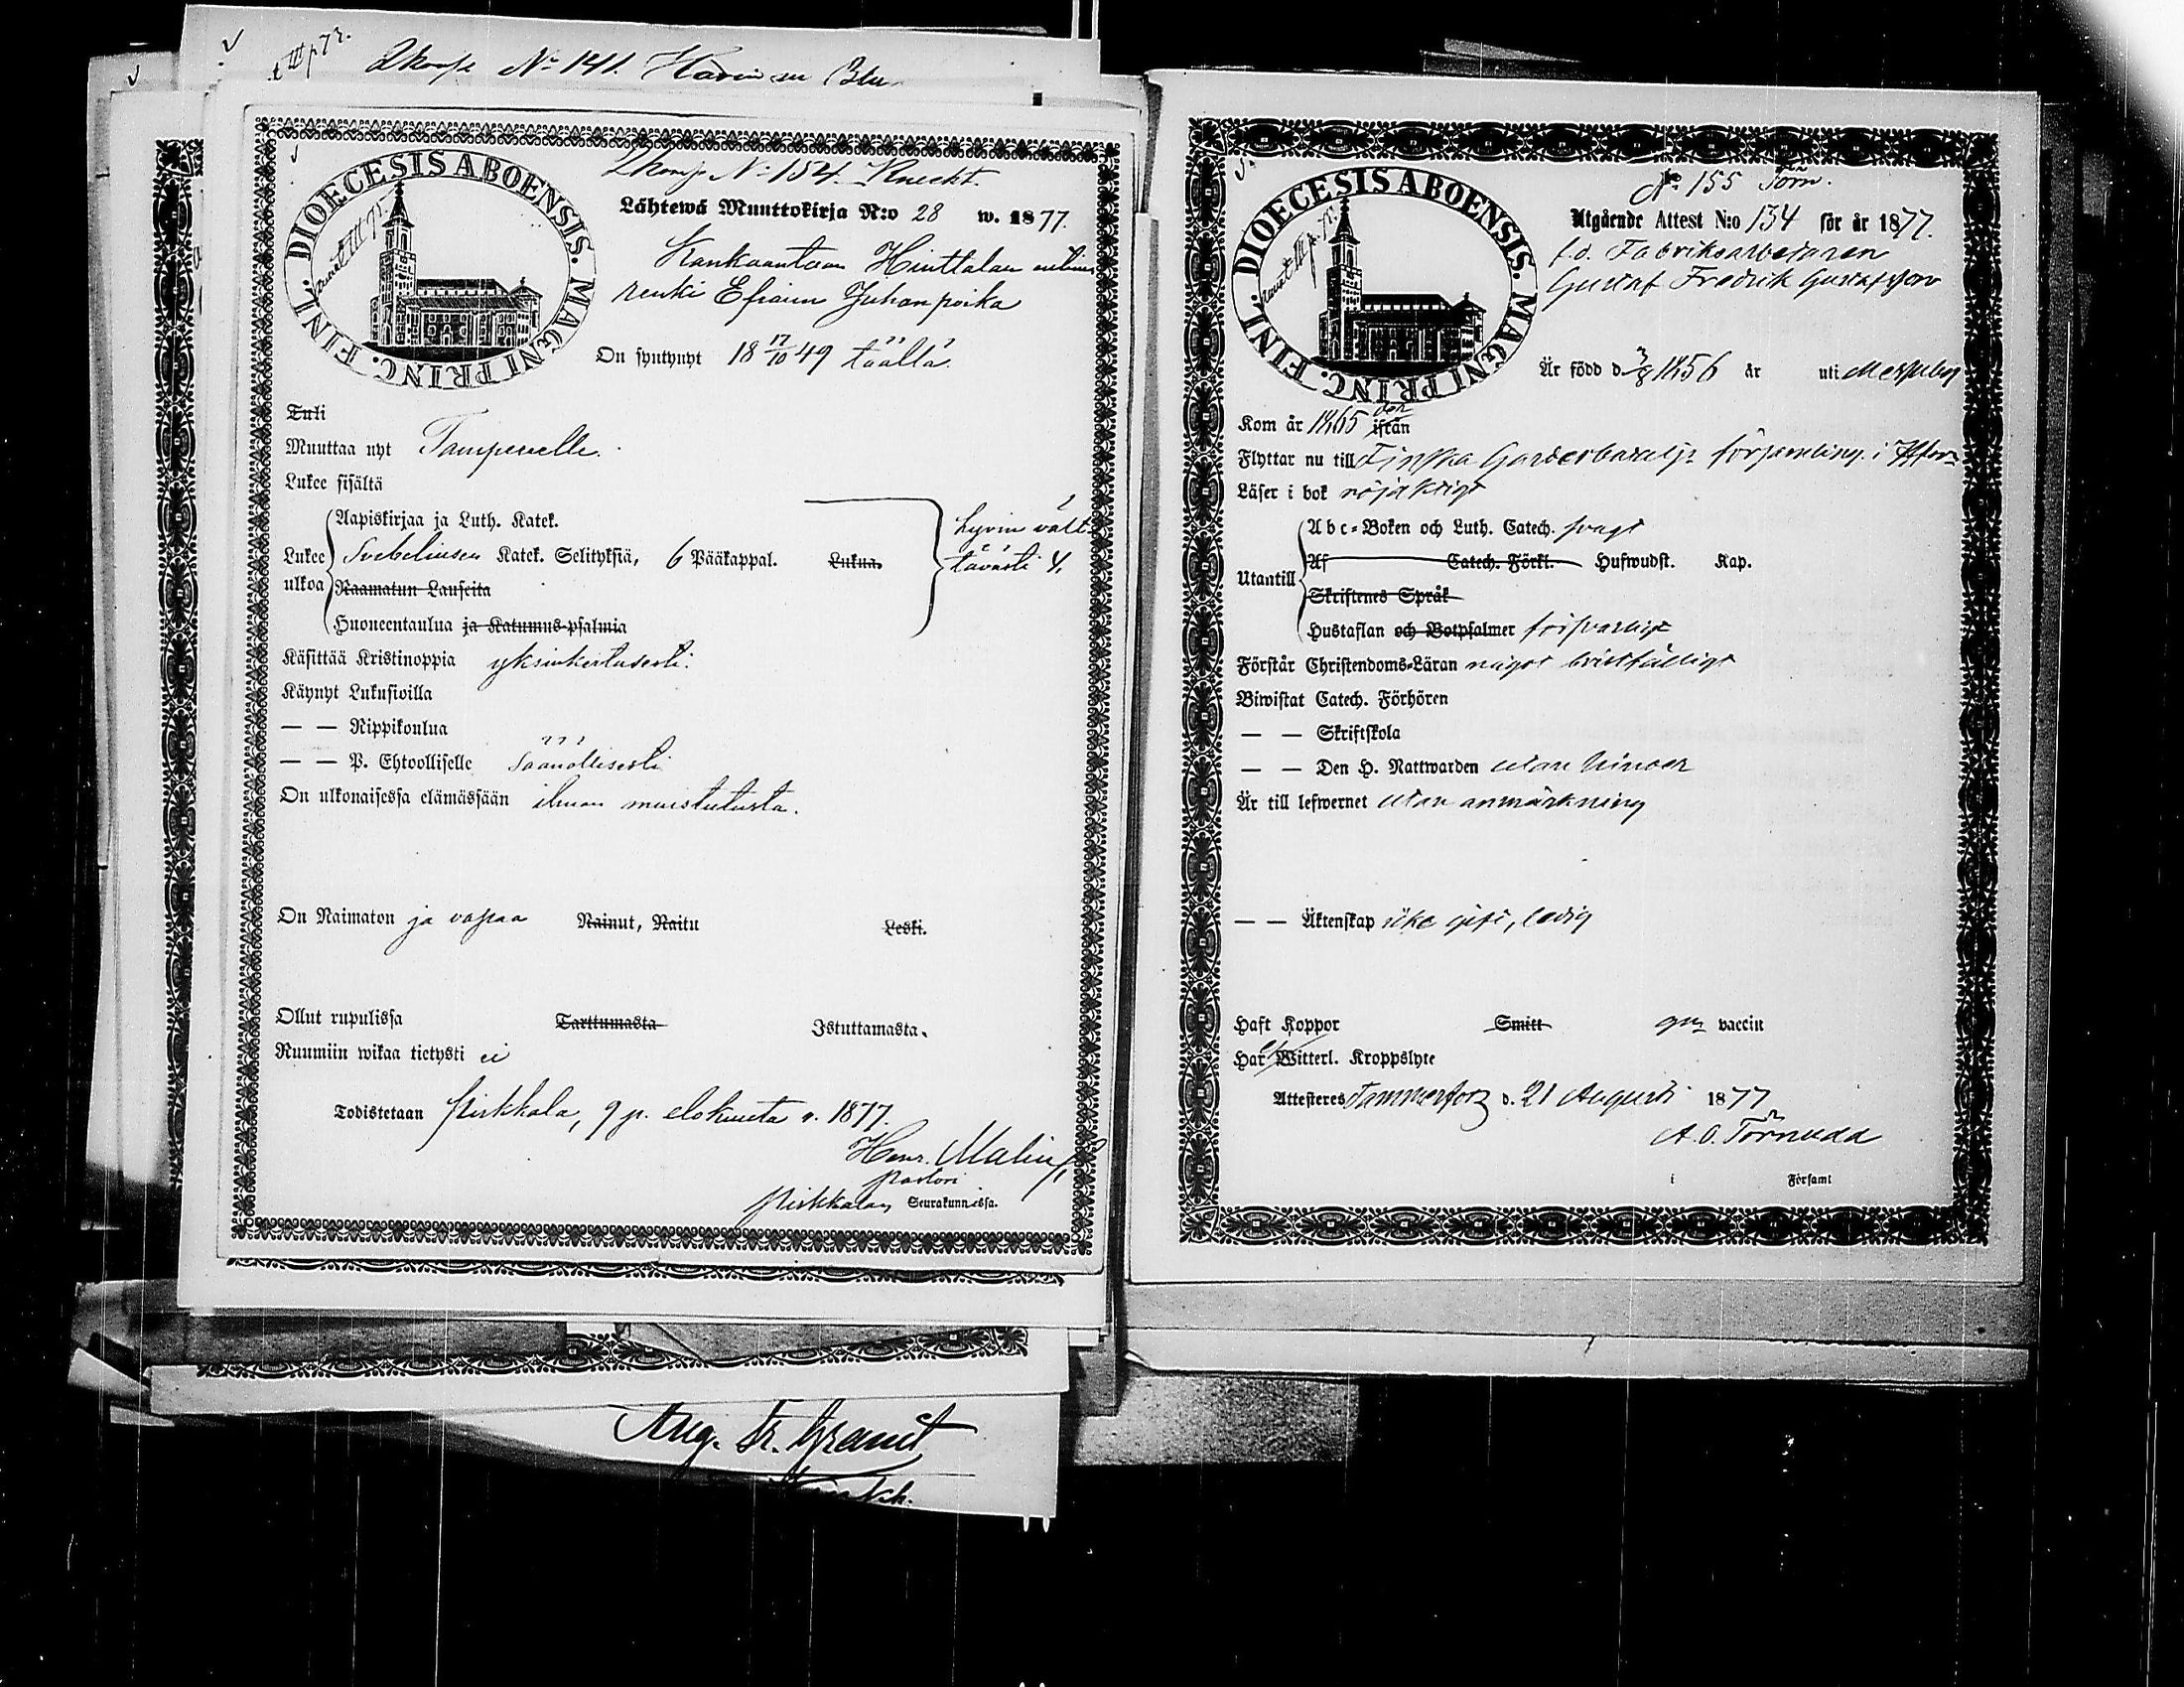 № 141.
DIOECESIS ABOENSIS. MAGNI PRINC. FINL.
2 komp. № 154. Knecht.
Lähtewä Muuttokirja N:o 28 w. 1877.
Kankaantaan Hinttalan entinen
renki Efraim Juhanpoika
On syntynyt 18 17/10 49 täällä.
Tuli
Muuttaa nyt Tampereelle.
Lukee sisältä
Aapiskirjaa ja Luth. Katek.
Lukee ulkoa Svebeliusen Katek. Selityksiä, 6 Pääkappal. Lukua.
hyvin vält-
tävästi 4.
Raamatun Lauseita
Huoneentaulua ja Katumus-psalmia
Käsittää Kristinoppia yksinkertaisesti.
Käynyt Lukusioilla
— — Rippikoulua
— — P. Ehtoolliselle säänöllisesti
On ulkonaisessa elämässään ilman muistutusta.
On Naimaton ja vapaa Nainut, Naitu Leski.
Ollut rupulissa Tarttumasta Istuttamasta.
Ruumiin wikaa tietysti ei
Todistetaan Pirkkala, 9 p. elokuuta v. 1877.
Henr. Malin
pastori
Pirkkalan Seurakunnassa.
Aug. Fr. Granit
DIOECESIS ABOENSIS. MAGNI PRINC. FINL.
№ 155 Törn.
Utgående Attest N:o 134 för år 1877.
f.d. Fabriksarbetaren
Gustaf Fredrik Gustafsson
Är född d 3/8 1856 år uti
Kom år 1865 ifrån
Flyttar nu till Finska Gardesbataljs församling i Hfors
Läser i bok nöjaktigt
Abc-Boken och Luth. Catech. svagt
Utantill Af Catech. Förkl. Hufwudst. Kap.
Skriftenes Språk
Hustaflan och Botpsalmer försvarligt
Förstår Christendoms-Läran något bristfälligt
Biwistat Catech. Förhören
— — Skriftskola
— — Den H. Nattwarden utan hinder
Är till lefwernet utan anmärkning
— — Äktenskap icke gift, ledig
Haft Koppor Smitt gm vaccin
Har ej Witterl. Kroppslyte
Attesteres Tammerfors d. 21 Augusti 1877
A. O. Törnudd
i Församl